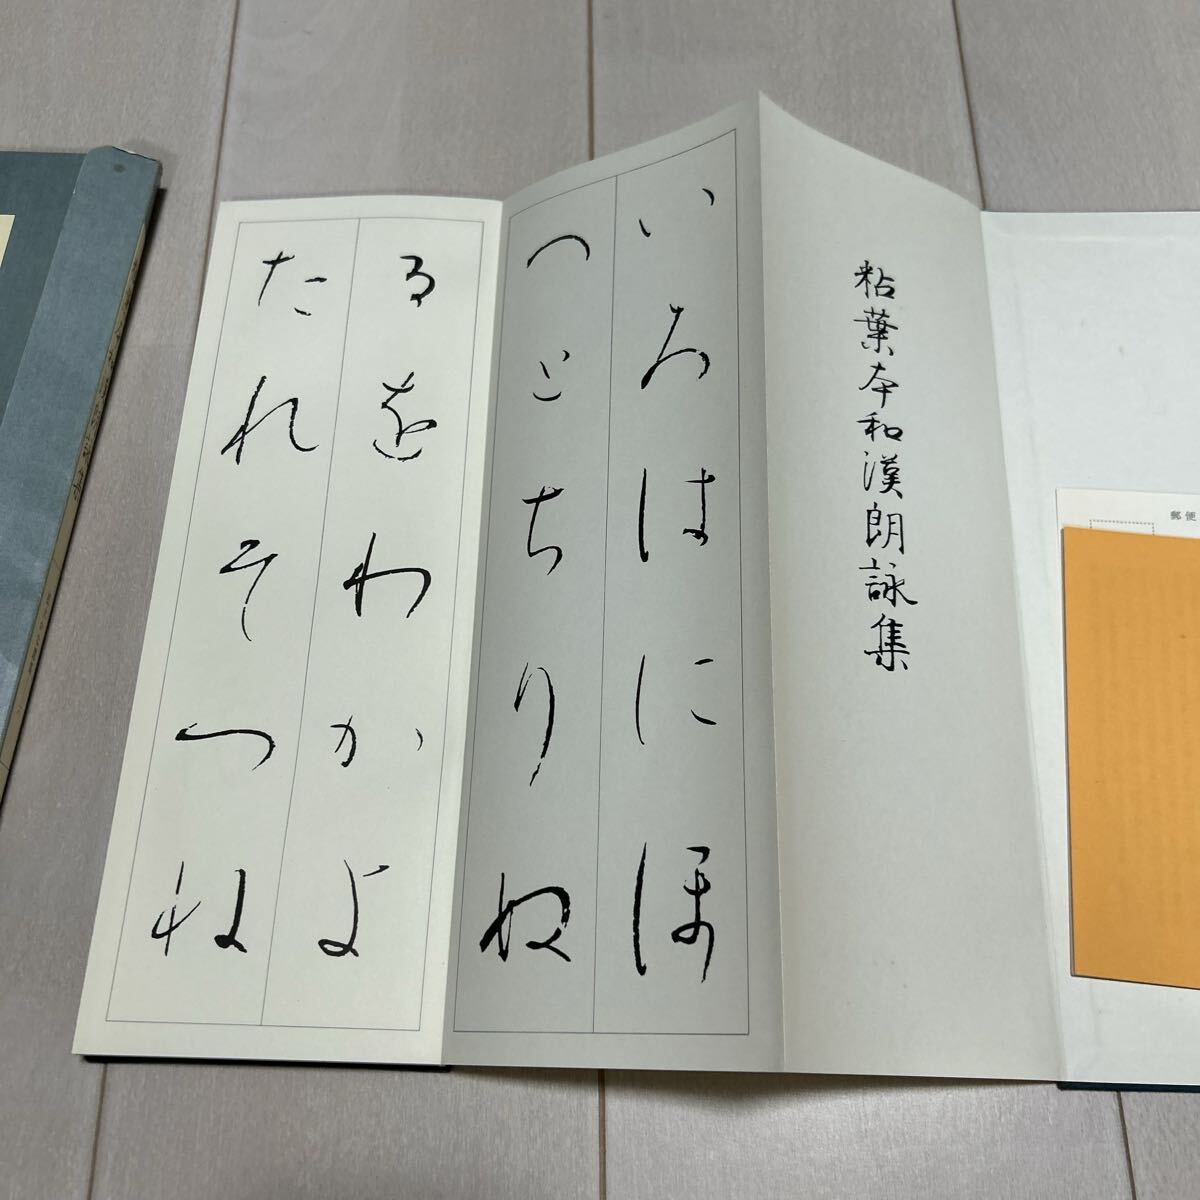 粘葉本和漢朗詠集
いろはにほ
へとちりぬ
るをわかよ
たれそつね
郵便